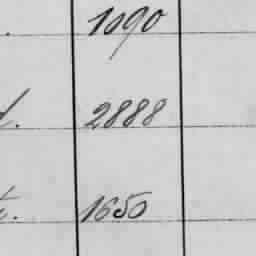 1090
2888
1650